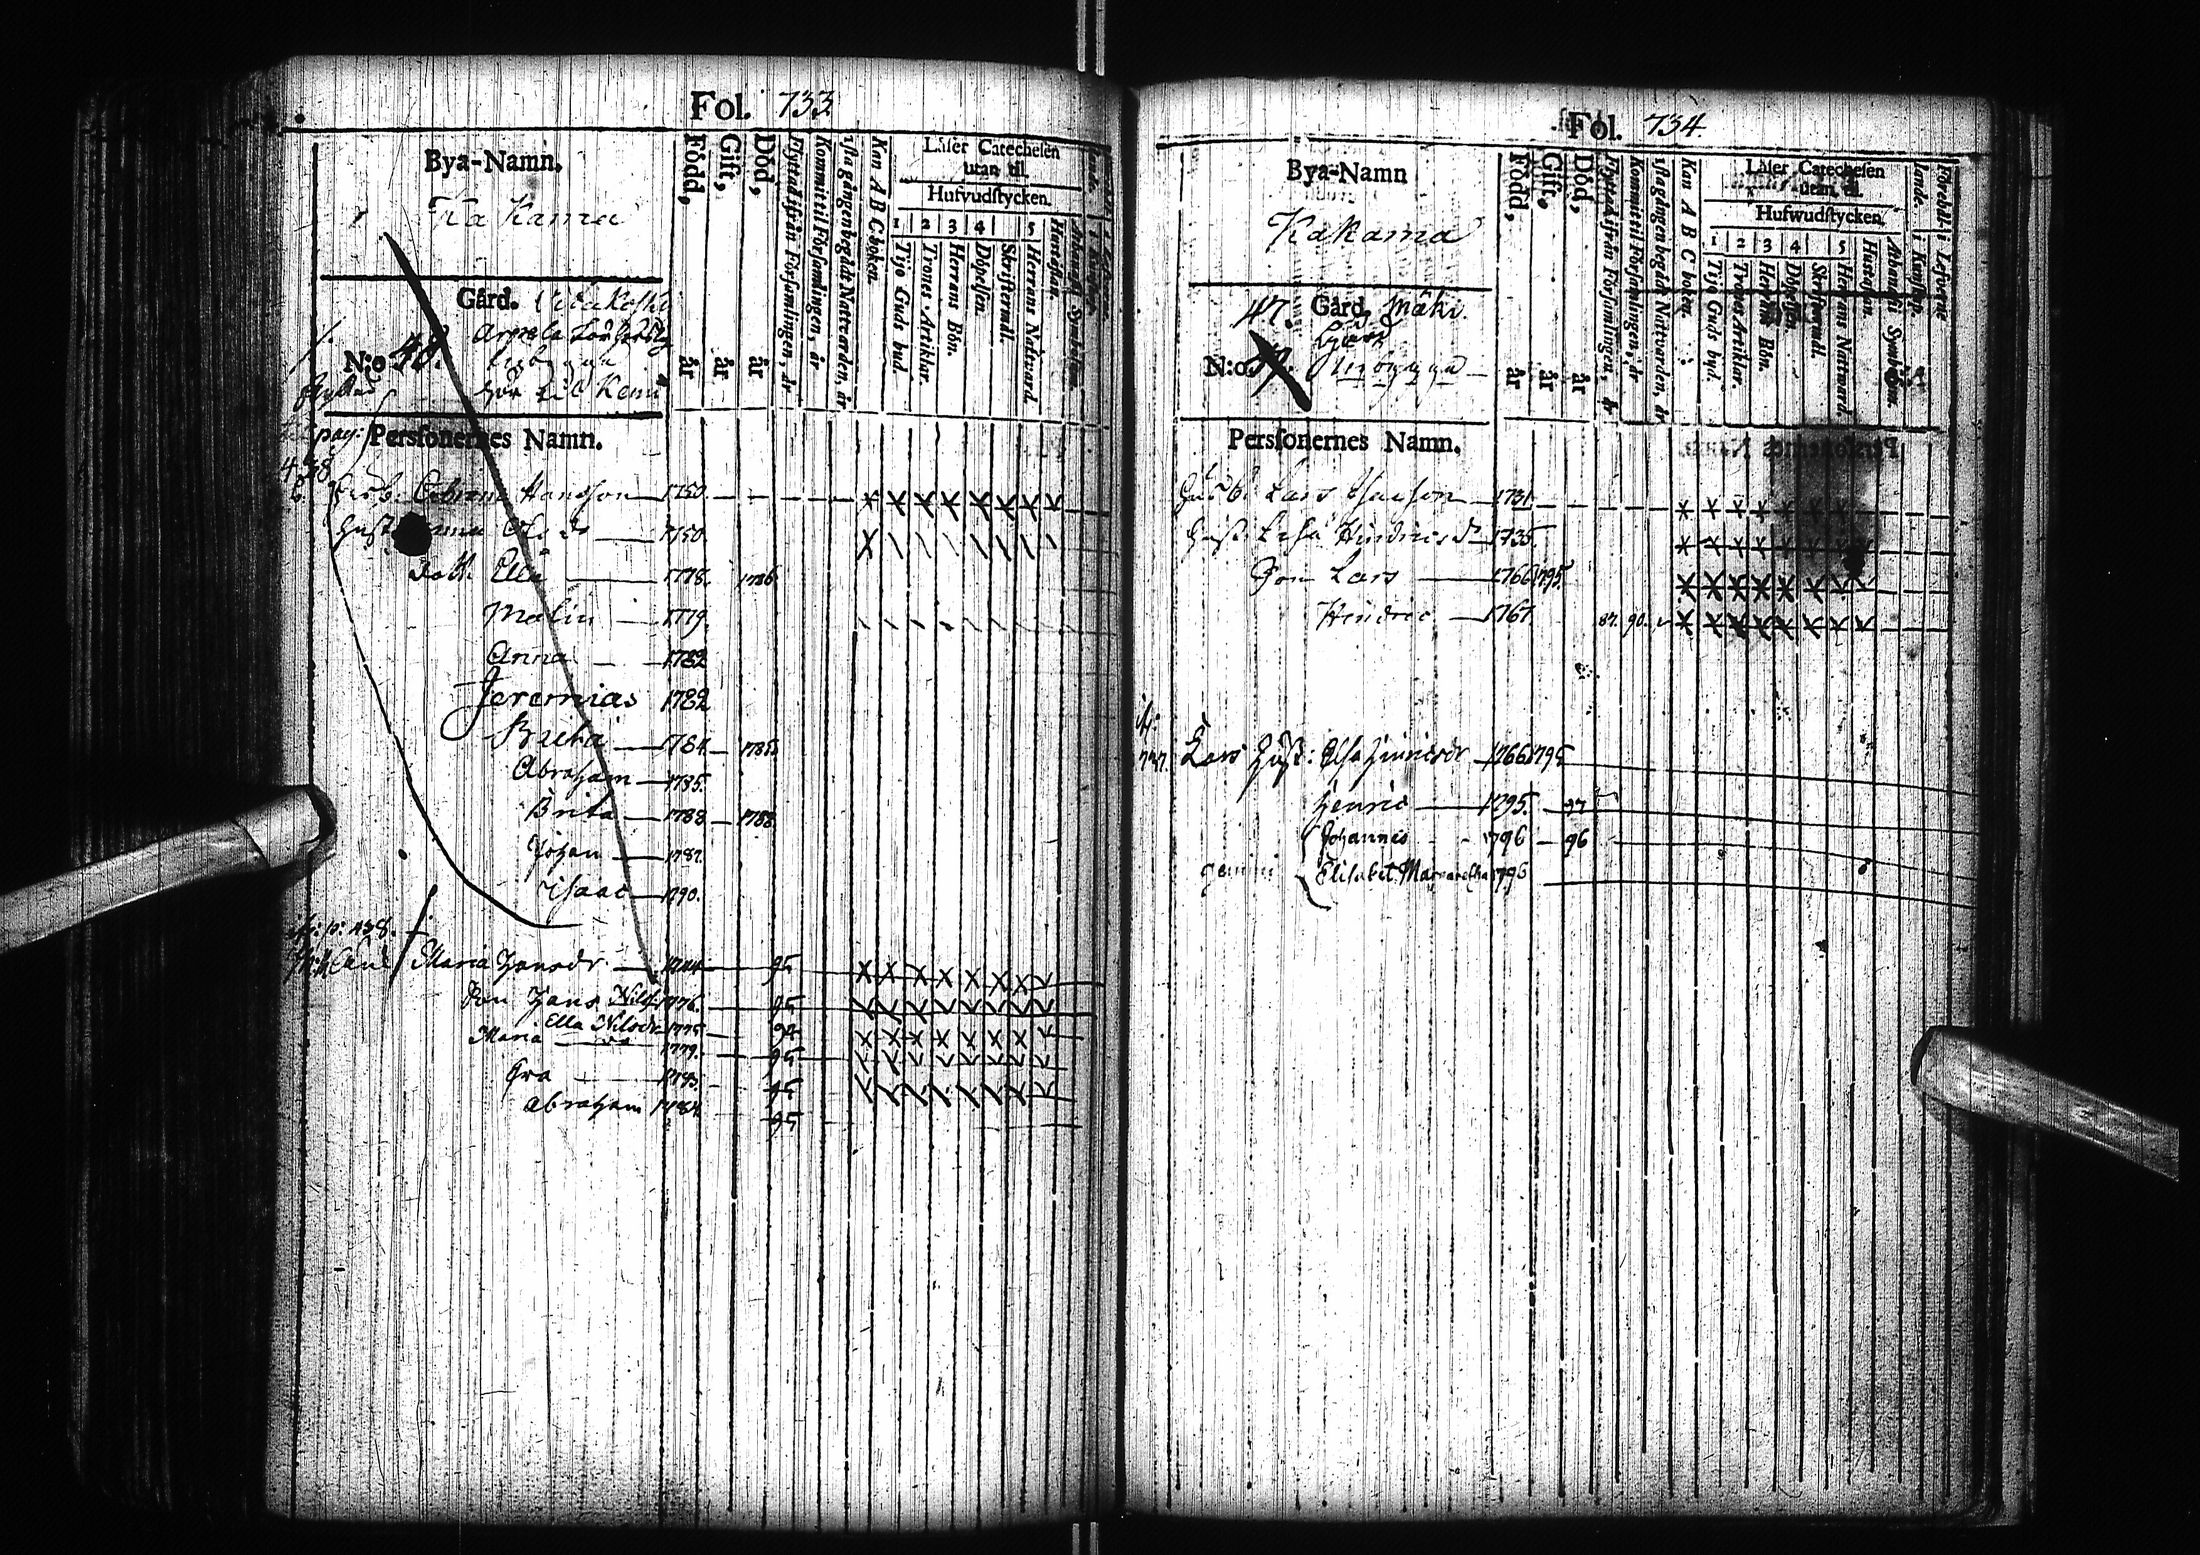 Fol. 733
Bya-Namn.
Kakama
Gård.
N:o 48.
hör til Kemi
Personernes Namn.
Född, år
Gift, år
Död, år
Flyttad ifrån Församlingen, år
Kommit til Församlingen, år
1sta gången begådt Nattvarden, år
Kan A B C boken.
Läser Catechesen
utan til.
Hufvudstycken.
1 2 3 4 5
Tijo Guds bud.
Trones Artiklar.
Herrans Bön.
Döpelsen.
Skriftermål.
Herrans Nattvard.
Hustaflan.
Athanasii Symbolum.
pag:
438
Hansson 1750
Hust 1750
Dott. Ella 1778. 1786
Malin 1779
Anna 1782
Jeremias 1782
Brita 1784 1785
Abraham 1785.
Brita 1788 1788
Johan 1787.
Isaac 1790.
p: 438.
Maria Hansdr 1744 95
Son Hans Nilss 1776. 95
Ella Nilsdr 1775 94
Maria 1779. 95
95
Abraham 1784 95
Fol. 734.
Bya-Namn
Kakama
47. Gård. Mäki
N:o Nybygge
Personernes Namn.
Född, år
Gift. år
Död, år
Flyttad ifrån Församlingen, år
Kommit til Församlingen, år
1sta gången begådt Nattvarden, år
Kan A B C boken.
Läser Catechesen
utan til.
Hufwudstycken.
1 2 3 4 5
Tijo Guds bud.
Trones Artiklar.
Herrans Bön.
Döpelsen
Skriftermål.
Herrans Nattward
Hustaflan.
Athanasii Symbolum.
Husb. Lars Isacson 1731
Hust. Lisa Hindricsdr 1735.
Son Lars 1766 1795.
Hindric 1767 87. 90.
737. Lars Hust: Elsa Hinricsdr 1766 1795
Henric 1795. 97
Johannes 1796 96
gemini Elisabet Margaretha 1796